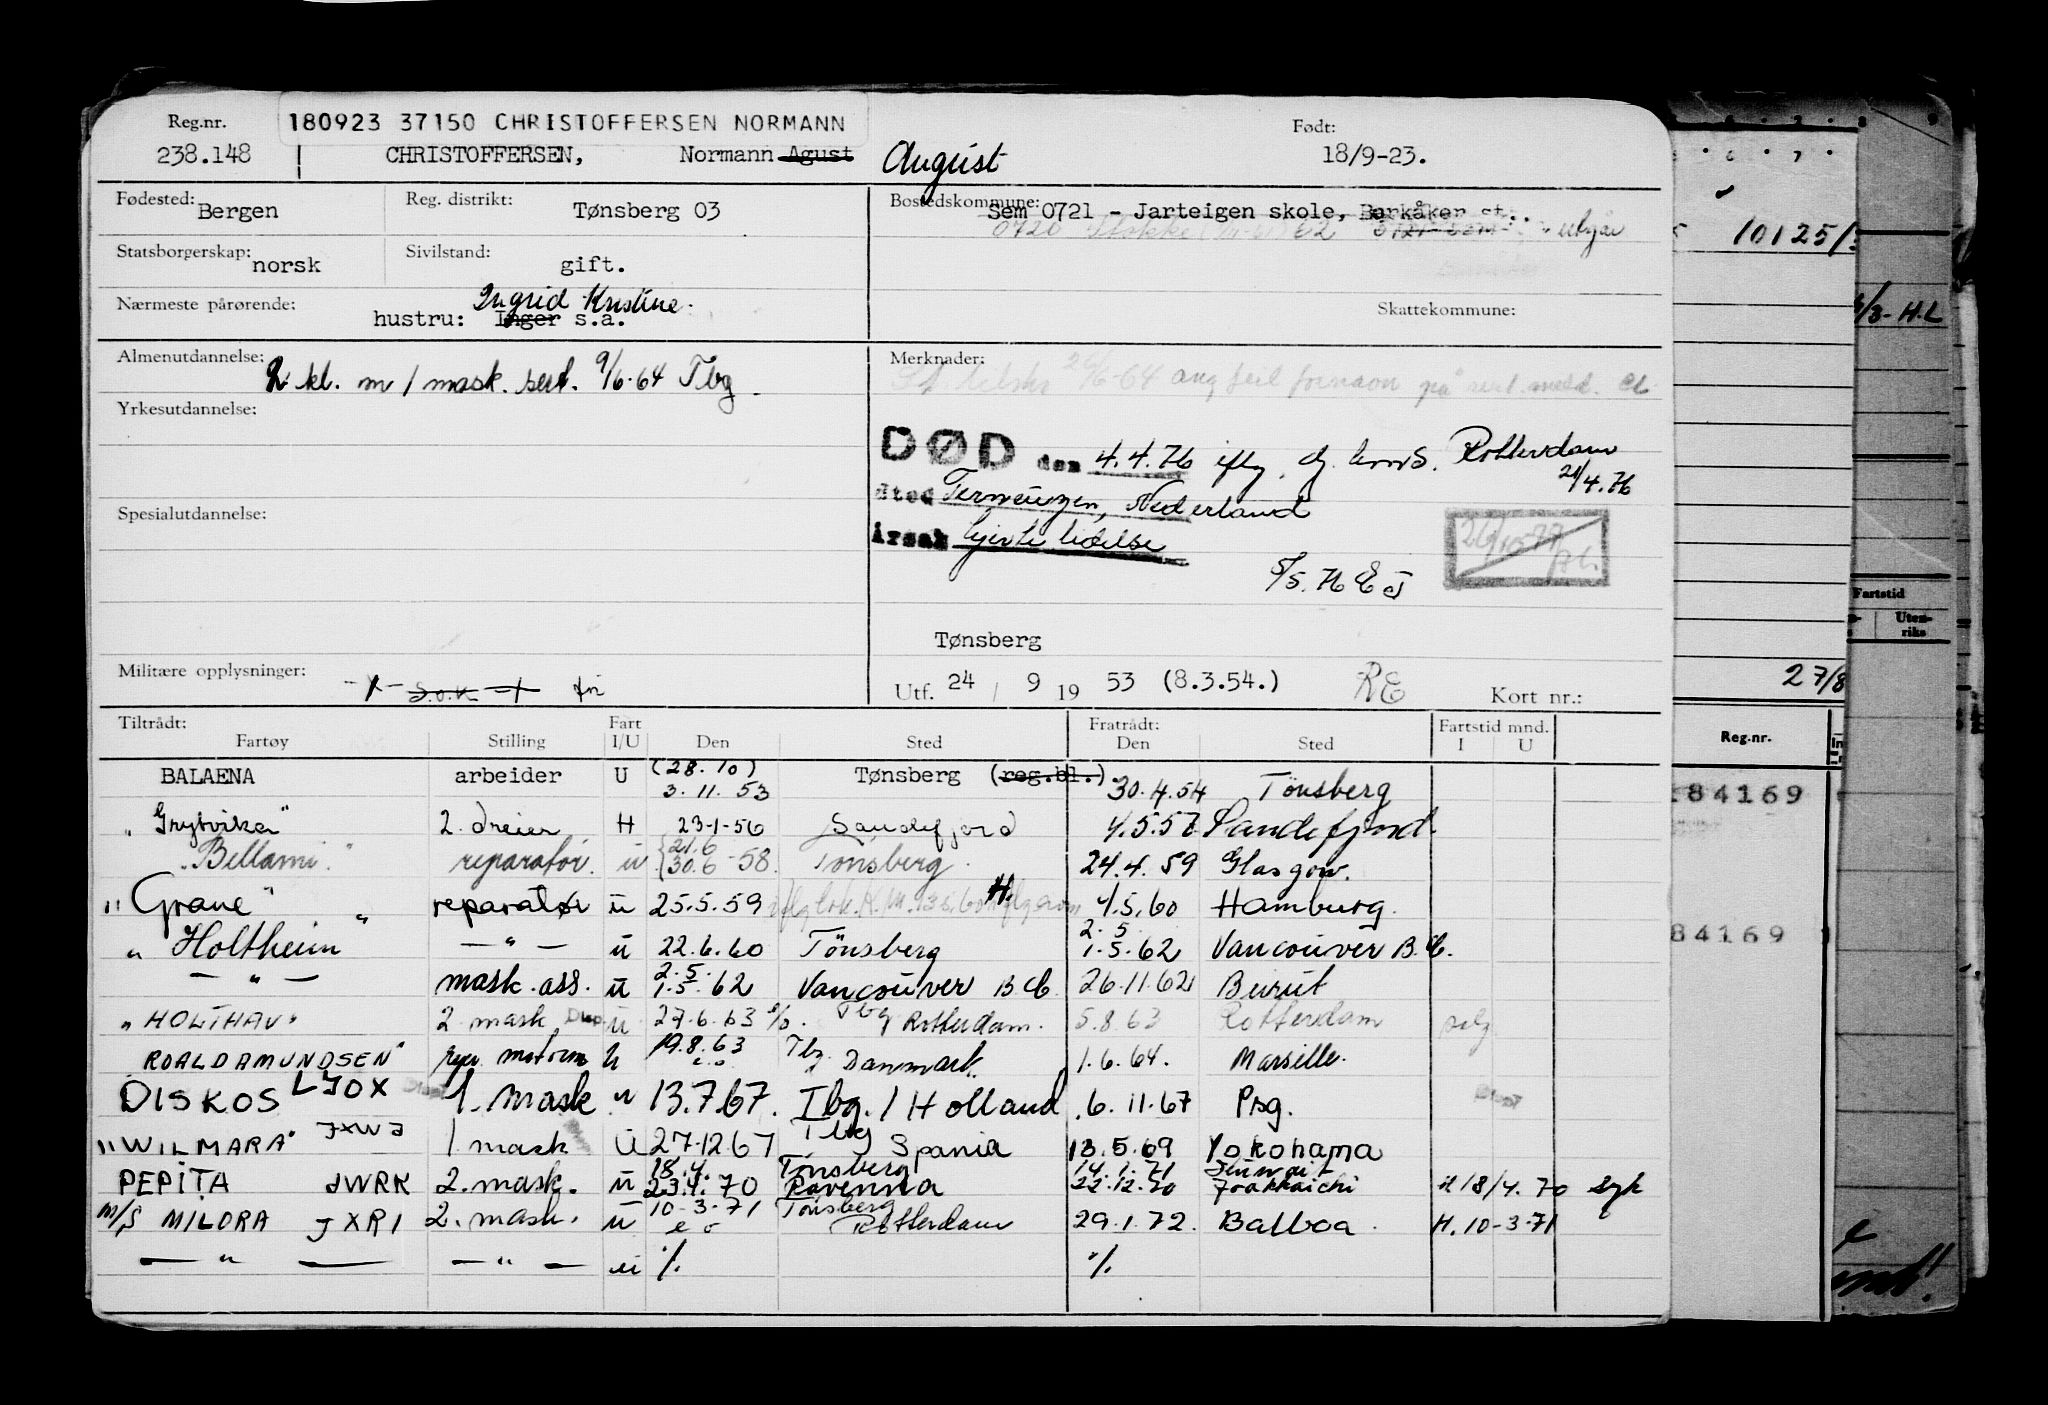 Reg.nr. 180923 37150 CHRISTOFFERSEN NORMANN Født:
238.148 CHRISTOFFERSEN, Normann Agust August 18/9-23.
Fødested: Bergen Reg. distrikt: Tønsberg 03 Bostedskommune: Sem 0721 - Jarteigen skole, Barkåker st..
0720 Stokke utgår
Statsborgerskap: norsk Sivilstand: gift.
Nærmeste pårørende: hustru: Inger s.a. Ingrid Kristine. Skattekommune:
Almenutdannelse: 2 kl. m / mask. sert. 9/6-64 Tbg. Merknader:
26/6-64 ang feil fornavn på sert. meld.
Yrkesutdannelse:
DØD den 4.4.76 iflg. dj. koms. Rotterdam
21/4.76
sted Terneuzen, Nederland
Spesialutdannelse:
Årsak hjerte lidelse
5/5.76 E J
Tønsberg
Militære opplysninger: S.o.k
Utf. 24 / 9 19 53 (8.3.54.) RE Kort nr.:
Tiltrådt: Fart Fratrådt: Fartstid mnd.
Fartøy Stilling I/U Den Sted Den Sted I U
BALAENA arbeider U (28.10) 3.11.53 Tønsberg (reg.bl.) 30.4.54 Tönsberg
"Grytviken" 2. dreier H 23-1-56 Sandefjord 4.5.57 Sandefjord.
"Bellami" reparatör. ü 21.6 30.6-58. Tönsberg. 24.4.59 Glasgow.
"Grane" reparatør ü 25.5.59 H. 4.5.60 Hamburg.
"Holtheim" — " — ü 22.6.60 Tönsberg 2.5. 1.5.62 Vancouver B.C.
— " — mask. ass. ü 2.5. 1.5.62 Vancouver B.C. 26.11.62 Beirut
"HOLTHAV" 2 mask Disp. ü 27.6.63 Tbg Rotterdam. 5.8.63 Rotterdam
ROALD AMUNDSEN" rep. motorm u 19.8.63 Tbg. Danmark. 1.6.64. Marseille.
DISKOS LJOX 1. mask u 13.7.67. Tbg. / Holland 6.11.67 Prg.
"WILMARA" JXWJ 1 mask Ü 27-12.67 Tbg Spania 13.5.69 Yokohama
PEPITA JWRK 2. mask. ü 18.4. 23.4.70 Tönsberg Ravenna 14.1.71 22.12.70 H 18/4.70 syk
M/S MILORA JXRI 2. mask. ü 10-3-71 Tönsberg Rotterdam 29.1.72. Balboa. H. 10-3-71
— " — — " — ü % %
10125/
/3- H.L
Fartstid
Uten-
riks
27/8
Reg.nr.
184169
84169